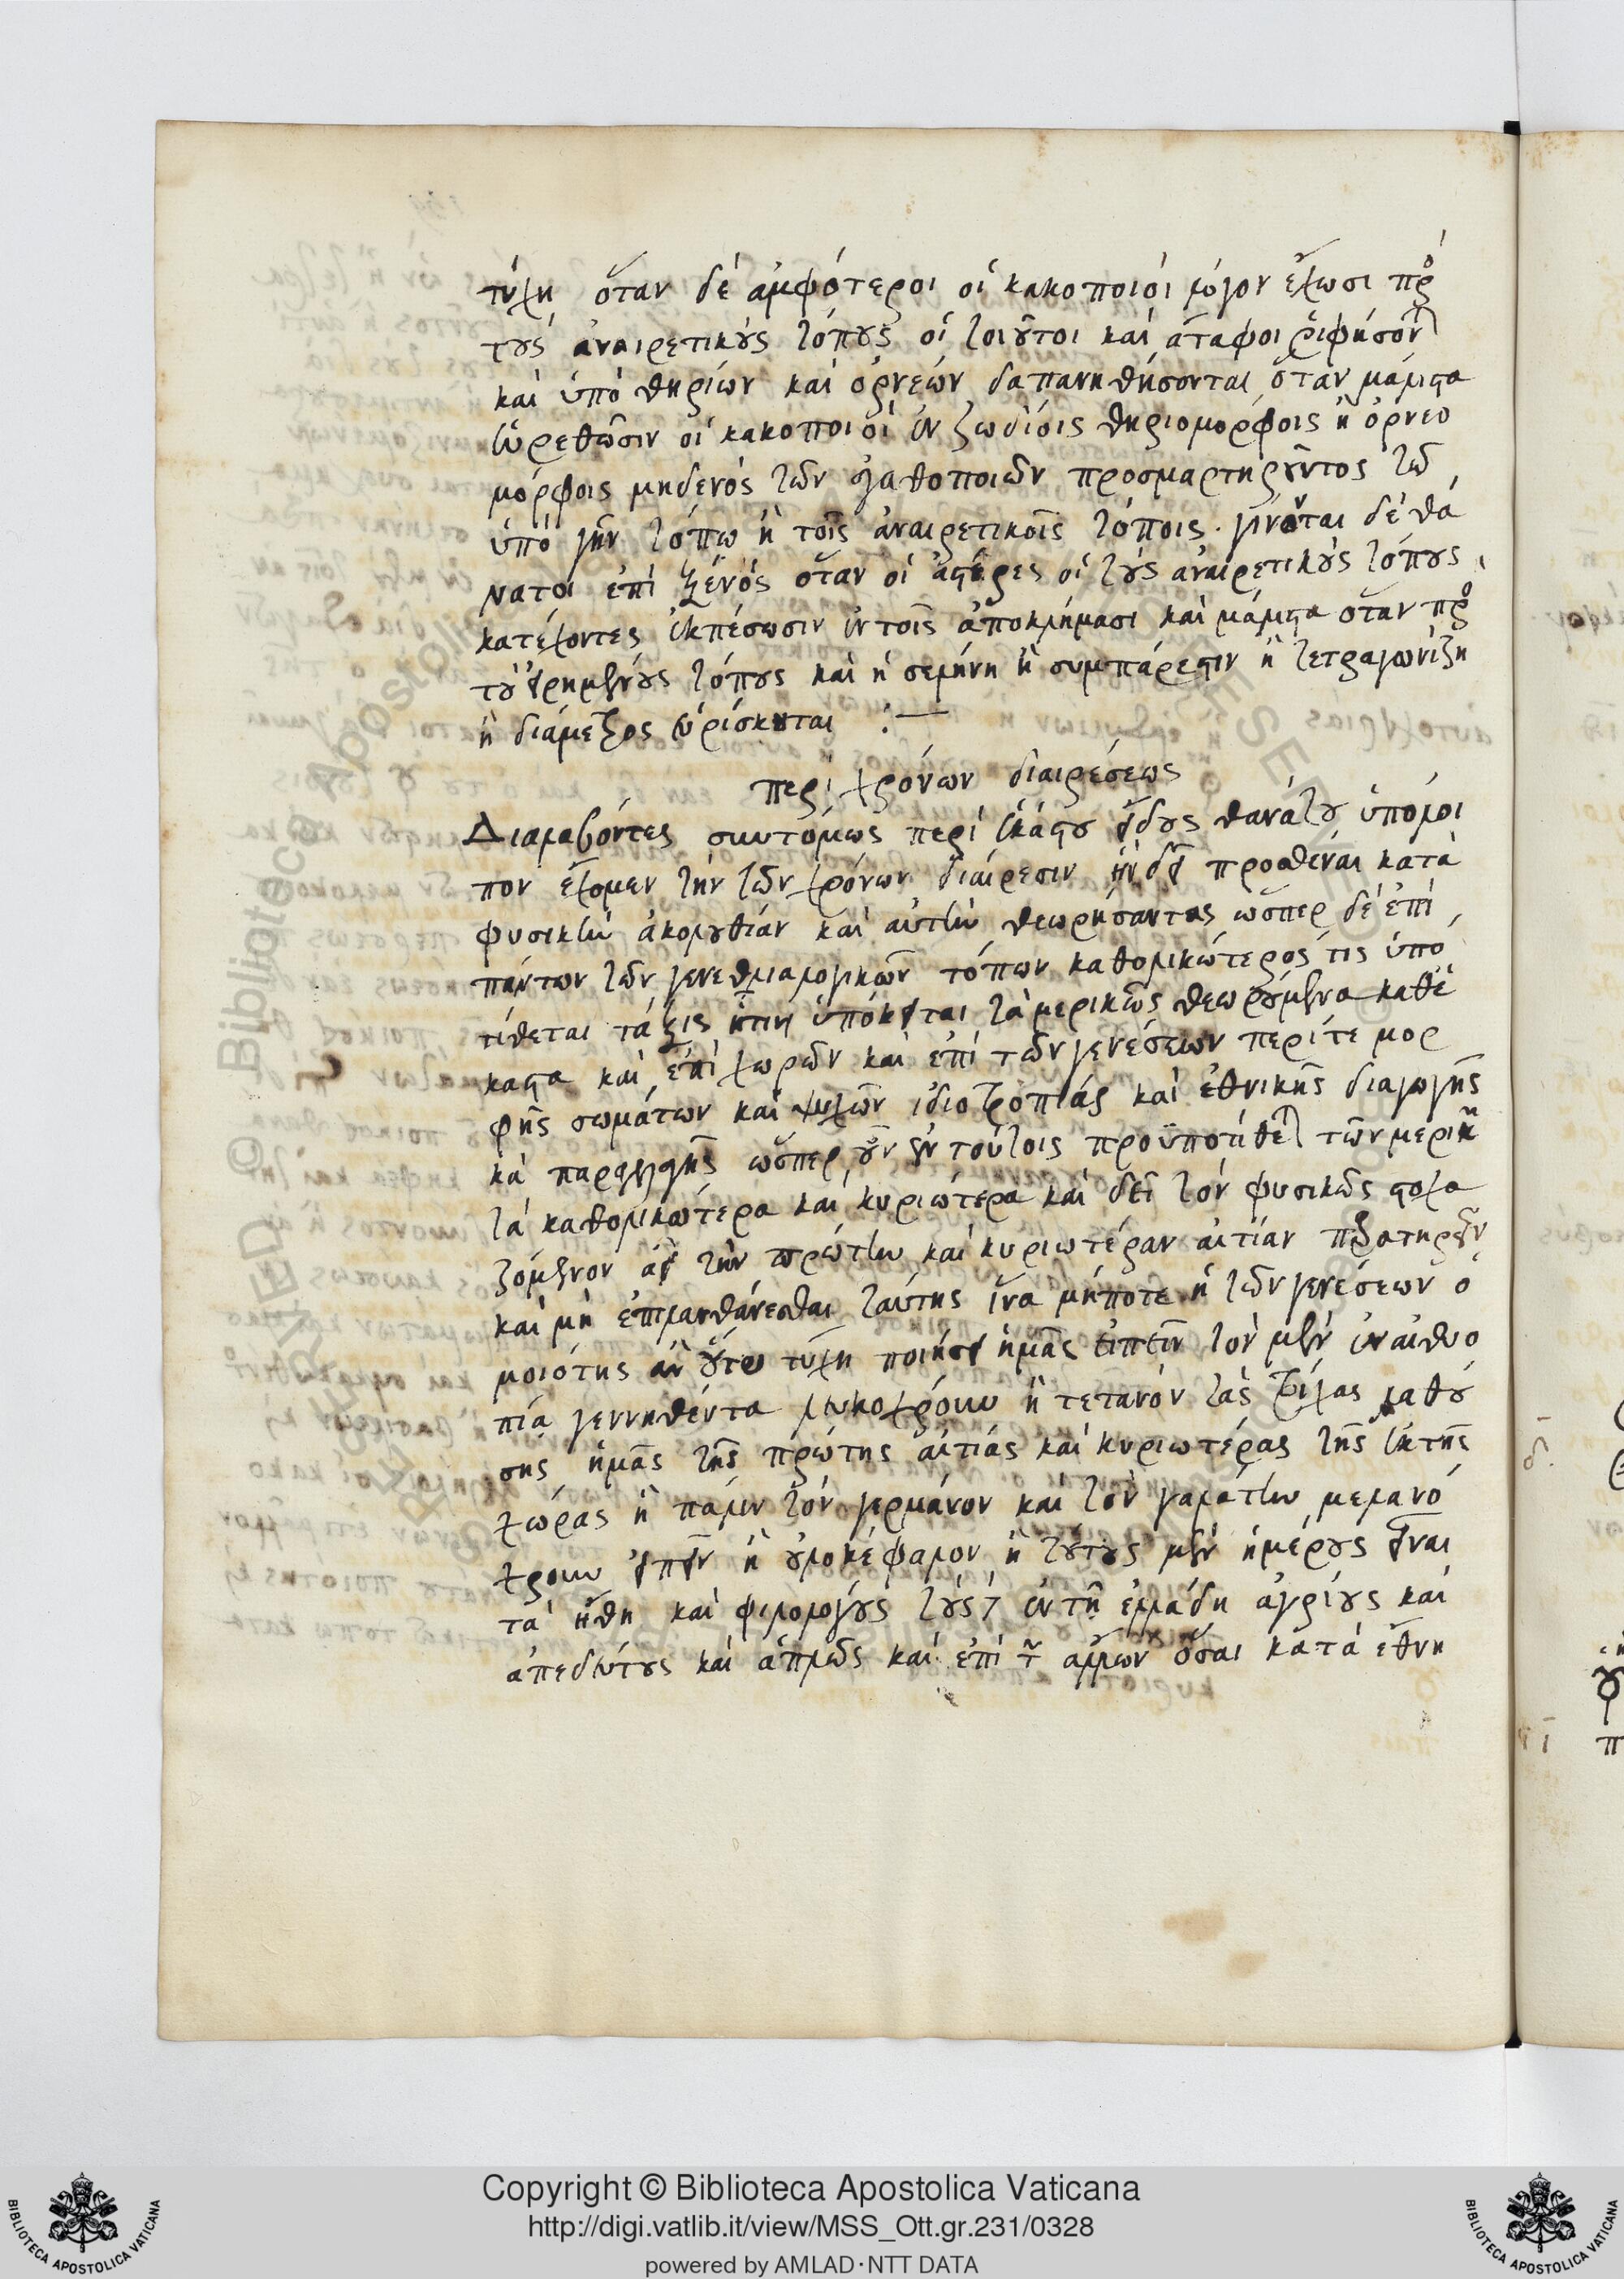 τύχη ὅταν δὲ ἀμφότεροι οἱ κακοποιοὶ λόγον ἔχωσι πρὸ
τοὺς ἀναιρετικοὺς τόπους οἱ τοιοῦτοι καὶ ἄταφοι ῥιφήσον
καὶ ὑπὸ θηρίων καὶ ὀρνεών δαπανηθήσονται ὅταν μάλιστα
εὑρεθῶσιν οἱ κακοποιοὶ ἐν ζωδίοις θηριομόρφοις ἢ ὀρνεο
μόρφοις μηδενὸς τῶν ἀγαθοποιῶν προσμαρτηροῦντος τῶ
ὑπὸ γῆν τόπω ἢ τοῖς ἀναιρετικοῖς τόποις. γίνονται δὲ θά
νατοι ἐπὶ ξένος ὅταν οἱ ἀστέρες οἱ τοὺς ἀναιρετικοὺς τόπους
κατέχοντες ἐκπέσωσιν ἐν τοῖς ἀποκλήμασι καὶ μάλιστα ὅταν πρὸ
τοὺ εἰρημένους τόπους καὶ ἡ σελήνη ἢ συμπάρεστιν ἢ τετραγωνίζη
ἢ διάμετρος εὑρίσκηται :—
περὶ χρόνων διαιρέσεως
Διαλαβόντες συντόμως περὶ ἑκάστου εἴδους θανάτου ὑπόλοι
πον ἔχομεν τὴν τῶν χρόνων διαίρεσιν ἣν δεῖ προσθεῖναι κατὰ
φυσικὴν ἀκολουθίαν καὶ αὐτὴν θεωρήσαντας ὥσπερ δὲ ἐπὶ
πάντων τῶν γενεθλιαλογικῶν τόπων καθολικώτερός τις ὑπό
τίθεται τάξις ᾕτινι ὑπόκειται τὰ μερικῶς θεωρούμενα καθέ
καστα καὶ ἐπὶ χωρῶν καὶ ἐπὶ τῶν γενέσεων περί τε μορ
φῆς σωμάτων καὶ ψυχῶν ἰδιοτροπίας καὶ ἐθνικῆς διαγωγῆς
κὰ παραλλαγῆς ὥσπερ οὖν ἐν τούτοις προϋποτίθε τῶν μερικ
τὰ καθολικώτερα καὶ κυριώτερα καὶ δεῖ τὸν φυσικῶς στοχα
ζόμενον ἀεὶ τὴν πρώτην καὶ κυριωτέραν αἰτίαν πρατηρεῖν
καὶ μὴ ἐπιλανθάνεσθαι ταύτης ἵνα μήποτε ἡ τῶν γενέσεων ὁ
μοιότης ἂν οὕτω τύχη ποιήσει ἡμᾶς εἰπεῖν τὸν μὲν ἐν αἰθιο
πία γεννηθέντα λευκόχρουν ἢ τετανὸν τὰς τρίχας λαθού
σης ἡμᾶς τῆς πρώτης αἰτίας καὶ κυριωτέρας τῆς ἐκ τῆς
χώρας ἢ πάλιν τὸν γερμάνον καὶ τὸν γαλάτην μελανό
χρουν εἰπεῖν ἢ οὐλοκέφαλον ἢ τούτους μὲν ἡμέρους εἶναι
τὰ ἤθη καὶ φιλολόγους τοὺς ἐν τῆ ἑλλάδη ἀγρίους καὶ
ἀπεδεύτους καὶ ἁπλῶς καὶ ἐπὶ τ ἄλλων ὅσαι κατὰ ἔθνη
Copyright © Biblioteca Apostolica Vaticana
http://digi.vatlib.it/view/MSS_Ott.gr.231/0328
powered by AMLAD·NTT DATA
BIBLIOTECA APOSTOLICA VATICANA
BIBLIOTECA APOSTOLICA VATICANA